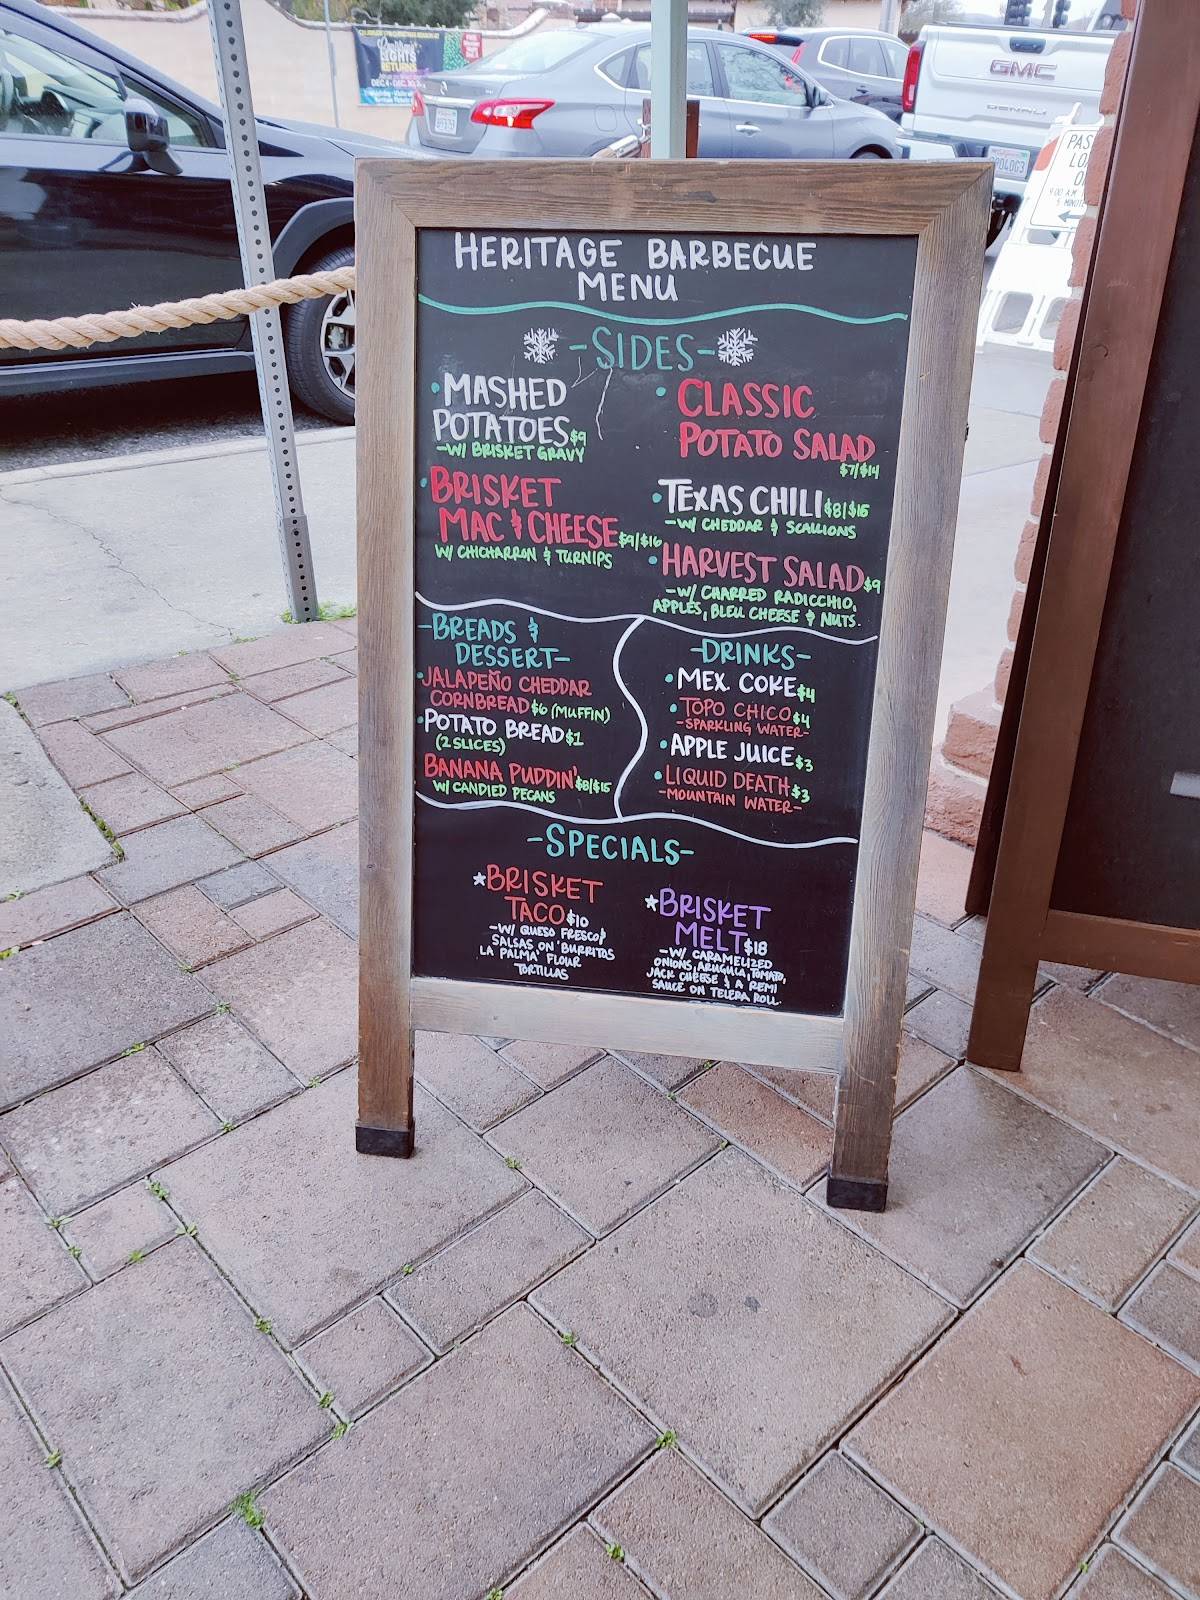 HERITAGE BARBECUE
MENU
-SIDES-
• MASHED
POTATOES $9
-W/ BRISKET GRAVY
• BRISKET
MAC & CHEESE $9/$16
W/ CHICHARRON & TURNIPS
• CLASSIC
POTATO SALAD
$7/$14
• TEXAS CHILI $8/$15
-W/ CHEDDAR & SCALLIONS
• HARVEST SALAD $9
-W/ CHARRED RADICCHIO,
APPLES, BLEU CHEESE & NUTS.
-BREADS &
DESSERT-
• JALAPEÑO CHEDDAR
CORNBREAD $6 (MUFFIN)
• POTATO BREAD $1
(2 SLICES)
BANANA PUDDIN' $8/$15
W/ CANDIED PECANS
-DRINKS-
• MEX. COKE $4
• TOPO CHICO $4
-SPARKLING WATER-
• APPLE JUICE $3
• LIQUID DEATH $3
-MOUNTAIN WATER-
-SPECIALS-
*BRISKET
TACO $10
-W/ QUESO FRESCO &
SALSAS ON 'BURRITOS
LA PALMA' FLOUR
TORTILLAS
*BRISKET
MELT $18
-W/ CARAMELIZED
ONIONS, ARUGULA, TOMATO,
JACK CHEESE & A REMI
SAUCE ON TELERA ROLL.
GMC
DENALI
LIGHTS
RETURNS
PAS
LO
O
9:00 AM
5 MINUTE